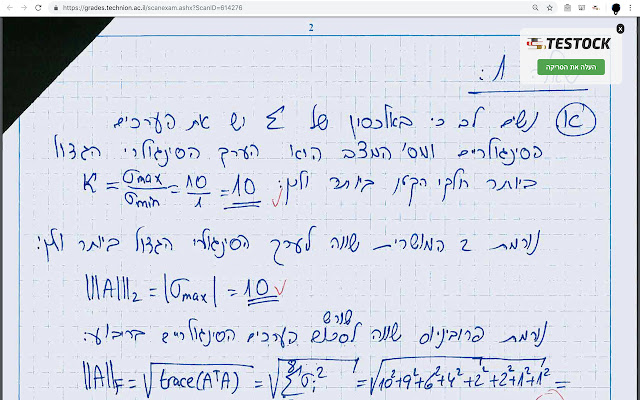 https://grades.technion.ac.il/scanexam.ashx?ScanID=614276
2
TESTOCK
העלה את הסריקה
1:
א) נשים לב כי באלכסון של Σ יש את הערכים
הסינגולריים ומס' המצב הוא הערך הסינגולרי הגדול
ביותר חלקי הקטן ביותר ולכן: K = σmax/σmin = 10/1 = 10
נורמת 2 המושרית שווה לערך הסינגולרי הגדול ביותר ולכן:
|||A|||₂ = |σmax| = 10
שורש
נורמת פרוביניוס שווה לסכום הערכים הסינגולריים בריבוע:
||A||F = √trace(AᵀA) = √Σσᵢ² = √10²+9²+6²+4²+2²+2²+1²+1² =